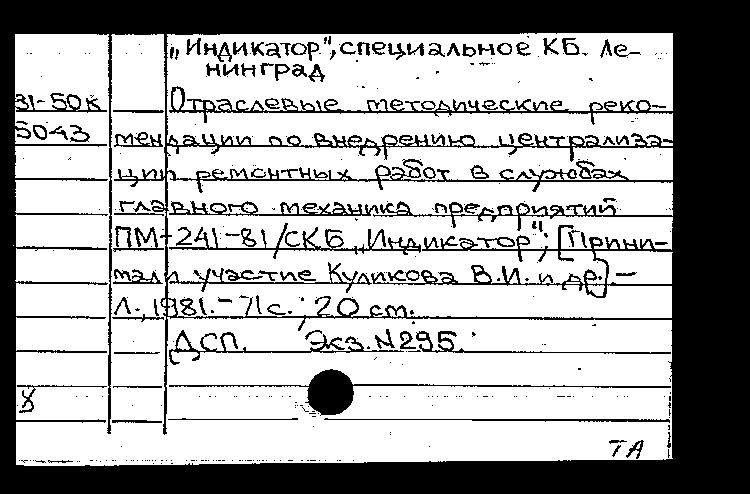 „Индикатор", специальное КБ. Ле-
нинград
31-50к Отраслевые методические реко-
5043 мендации по внедрению централиза-
ции ремонтных работ в службах
главного механика предприятий
ПМ-241-81/СКБ „Индикатор"; [Прини-
мали участие Куликова В.И. и др.].-
Л., 1981.-71с.; 20 см.
ДСП. Экз.N295.
8
ТА